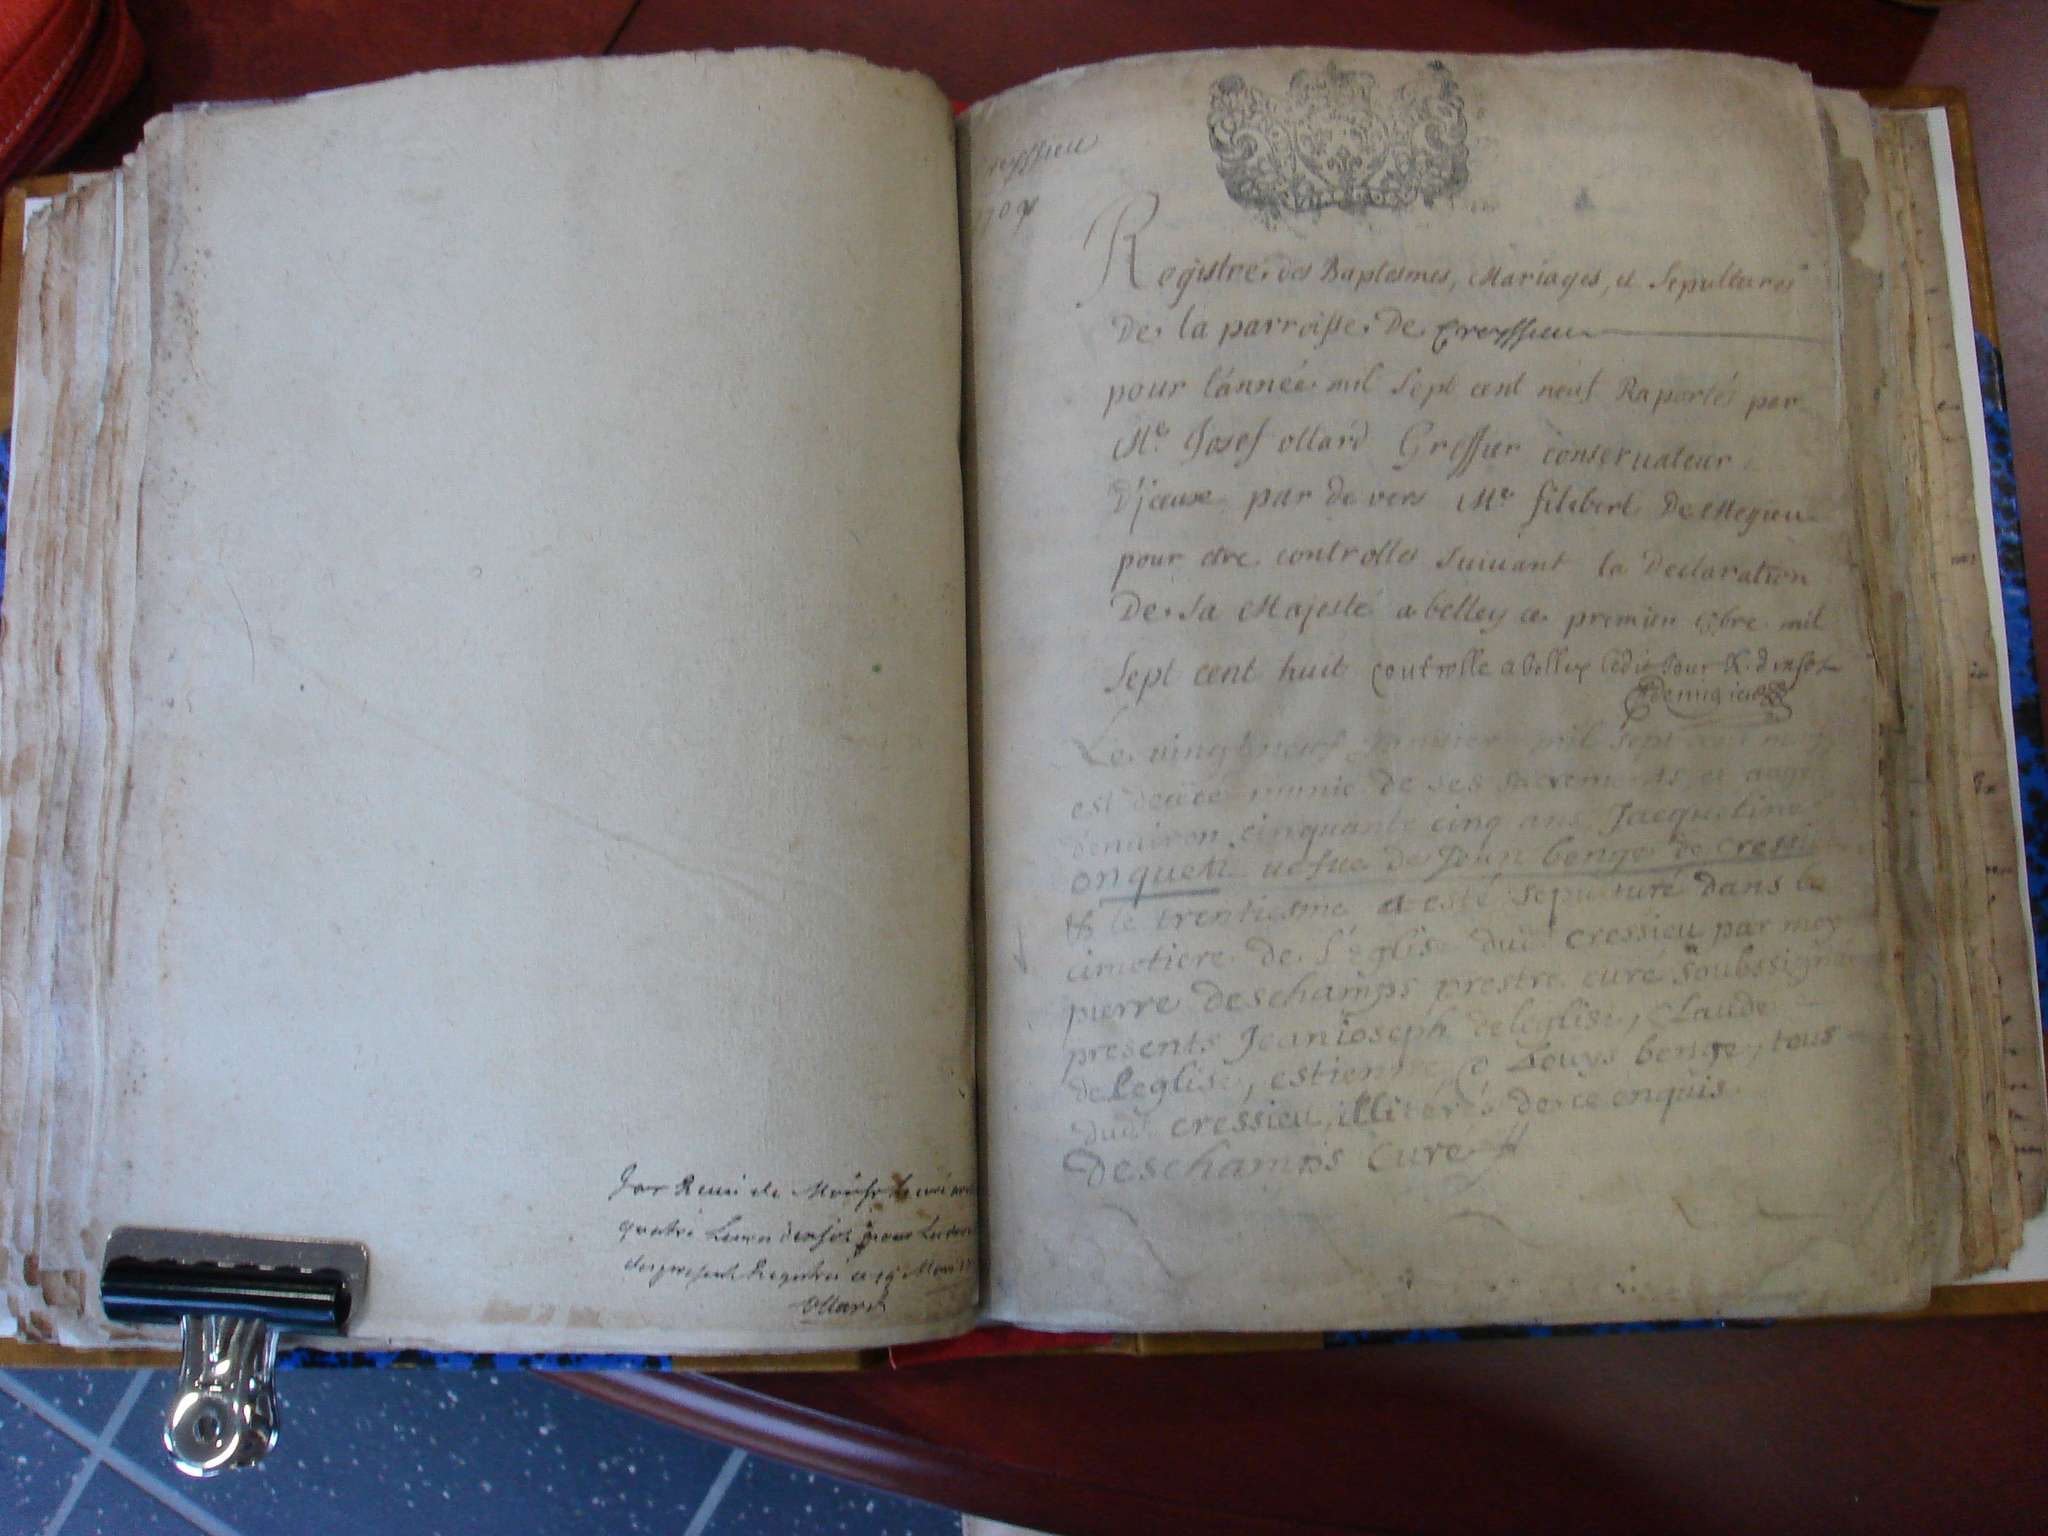 quatre
du present Registre ce 19
Ollard
1709
Registre des Baptesmes, Mariages, et Sepultures
De la parroisse De Creyssieu
pour l'année mil sept cent neuf Raportés par
Me Josef ollard Greffier conservateur
D'jceux par de vers Me filibert De Megieu
pour etre controlles suivant la Declaration
De sa Majesté a belley ce premier xbre mil
sept cent huit controlle a belley ledit jour
demigieu
Le vingt neuf Janvier mil sept cent neuf
est decedée munie de ses sacrements et aagée
d'enuiron cinquante cinq ans Jacquetine
onquent uefue de Jean benge de cressieu
& le trentiesme a esté sepulturé dans le
cimetiere de l'Eglise dud cressieu par moy
pierre deschamps prestre curé soubssigné
presents Jean ioseph deleglise, Claude
deleglise, estienne, & Louys benge, tous
dud cressieu, illiterés de ce enquis
deschamps curé